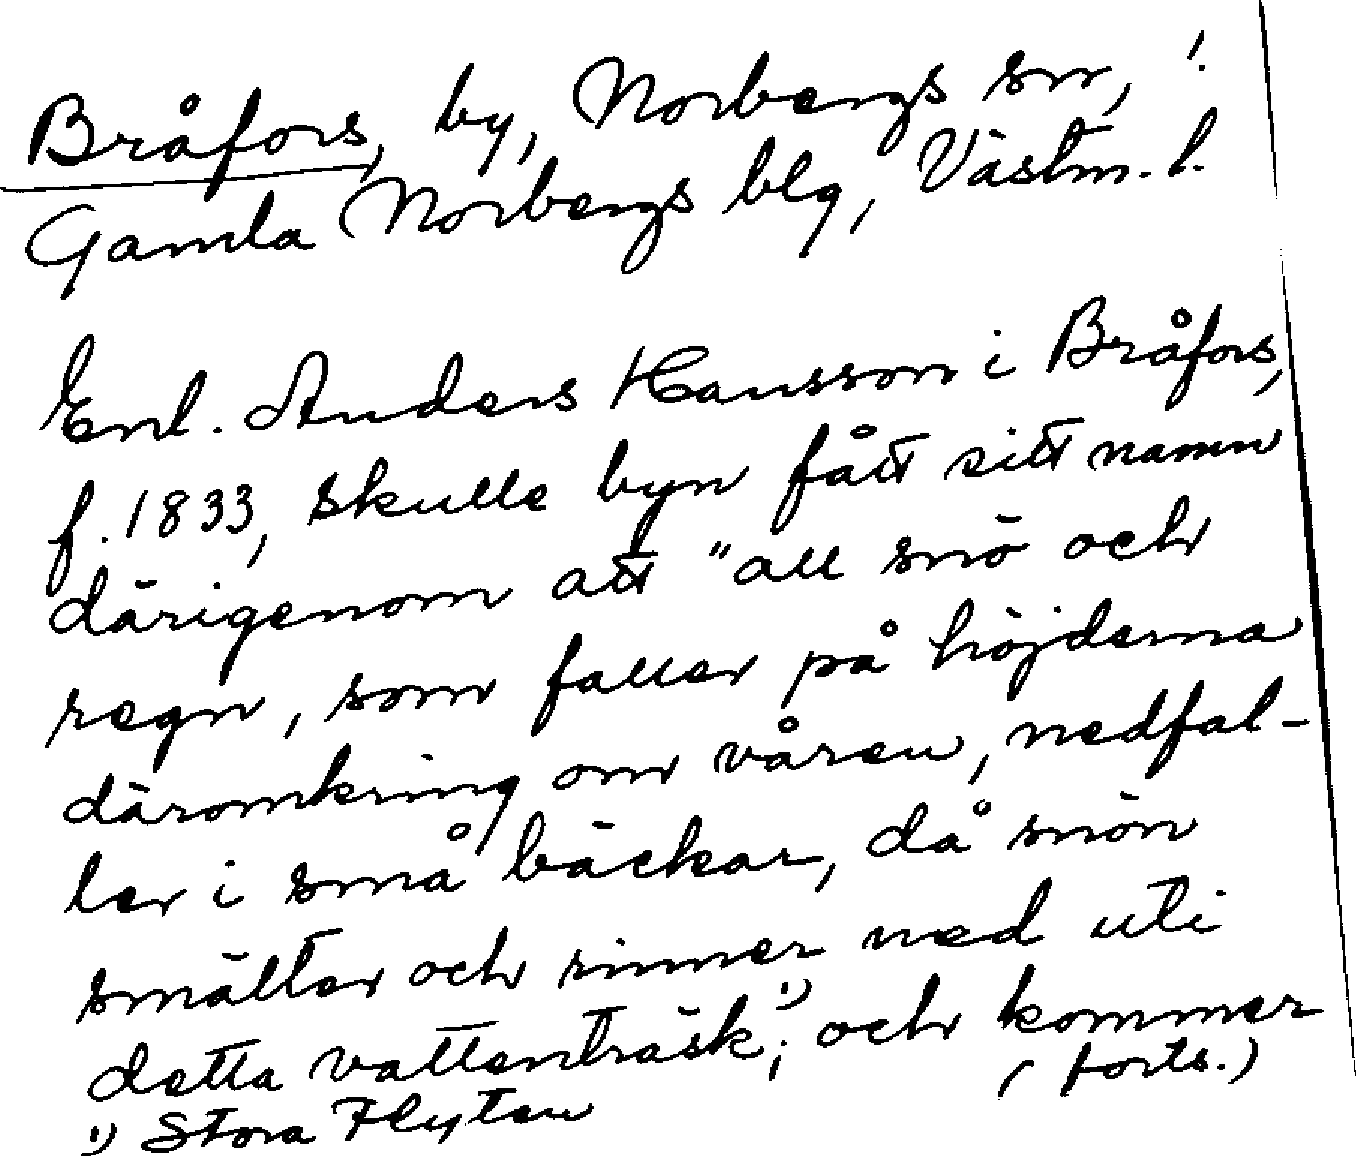 Bråfors, by, Norbergs sn, !
Gamla Norbergs blg, Västm. l.
Enl. Anders Hansson i Bråfors,
f. 1833, skulle byn fått sitt namn
därigenom att "all snö och
regn, som faller på höjderna
däromkring om våren, nedfal-
ler i små bäckar, då snön
smälter och rinner ned uti
detta vattenträsk;¹⁾ och kommer
(forts.)
¹⁾ Stora Flyten